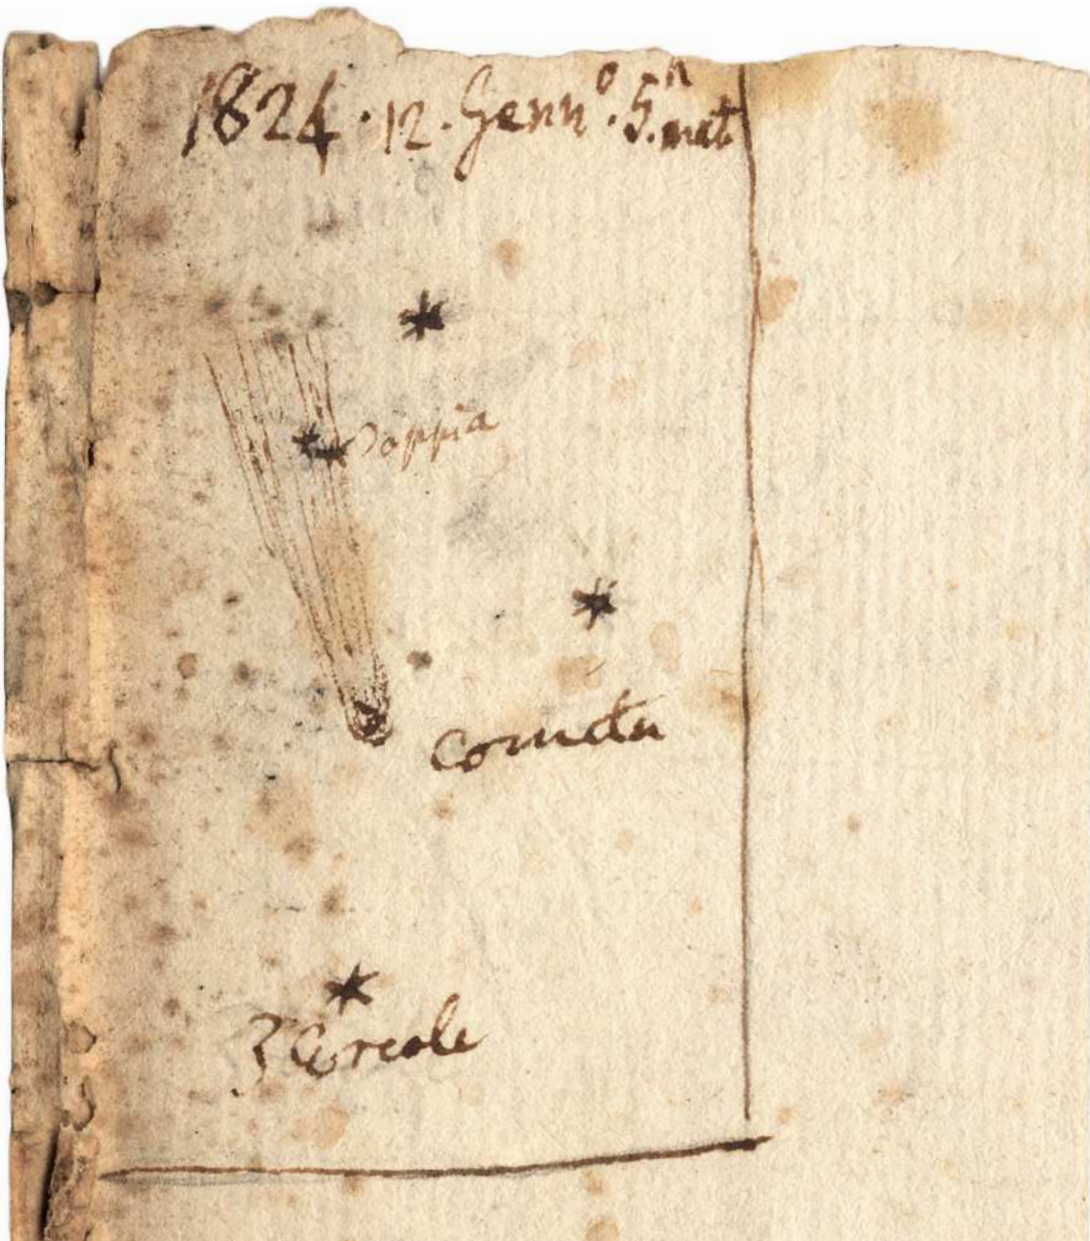 1824. 12. Genn.º 5.ʰ mat
Doppia
Cometa
ζ Ercole